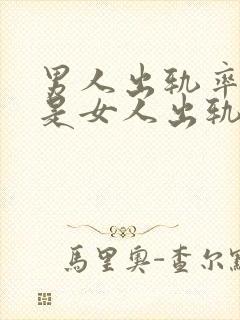 男人出轨率
是女人出轨
馬里奥-查尔